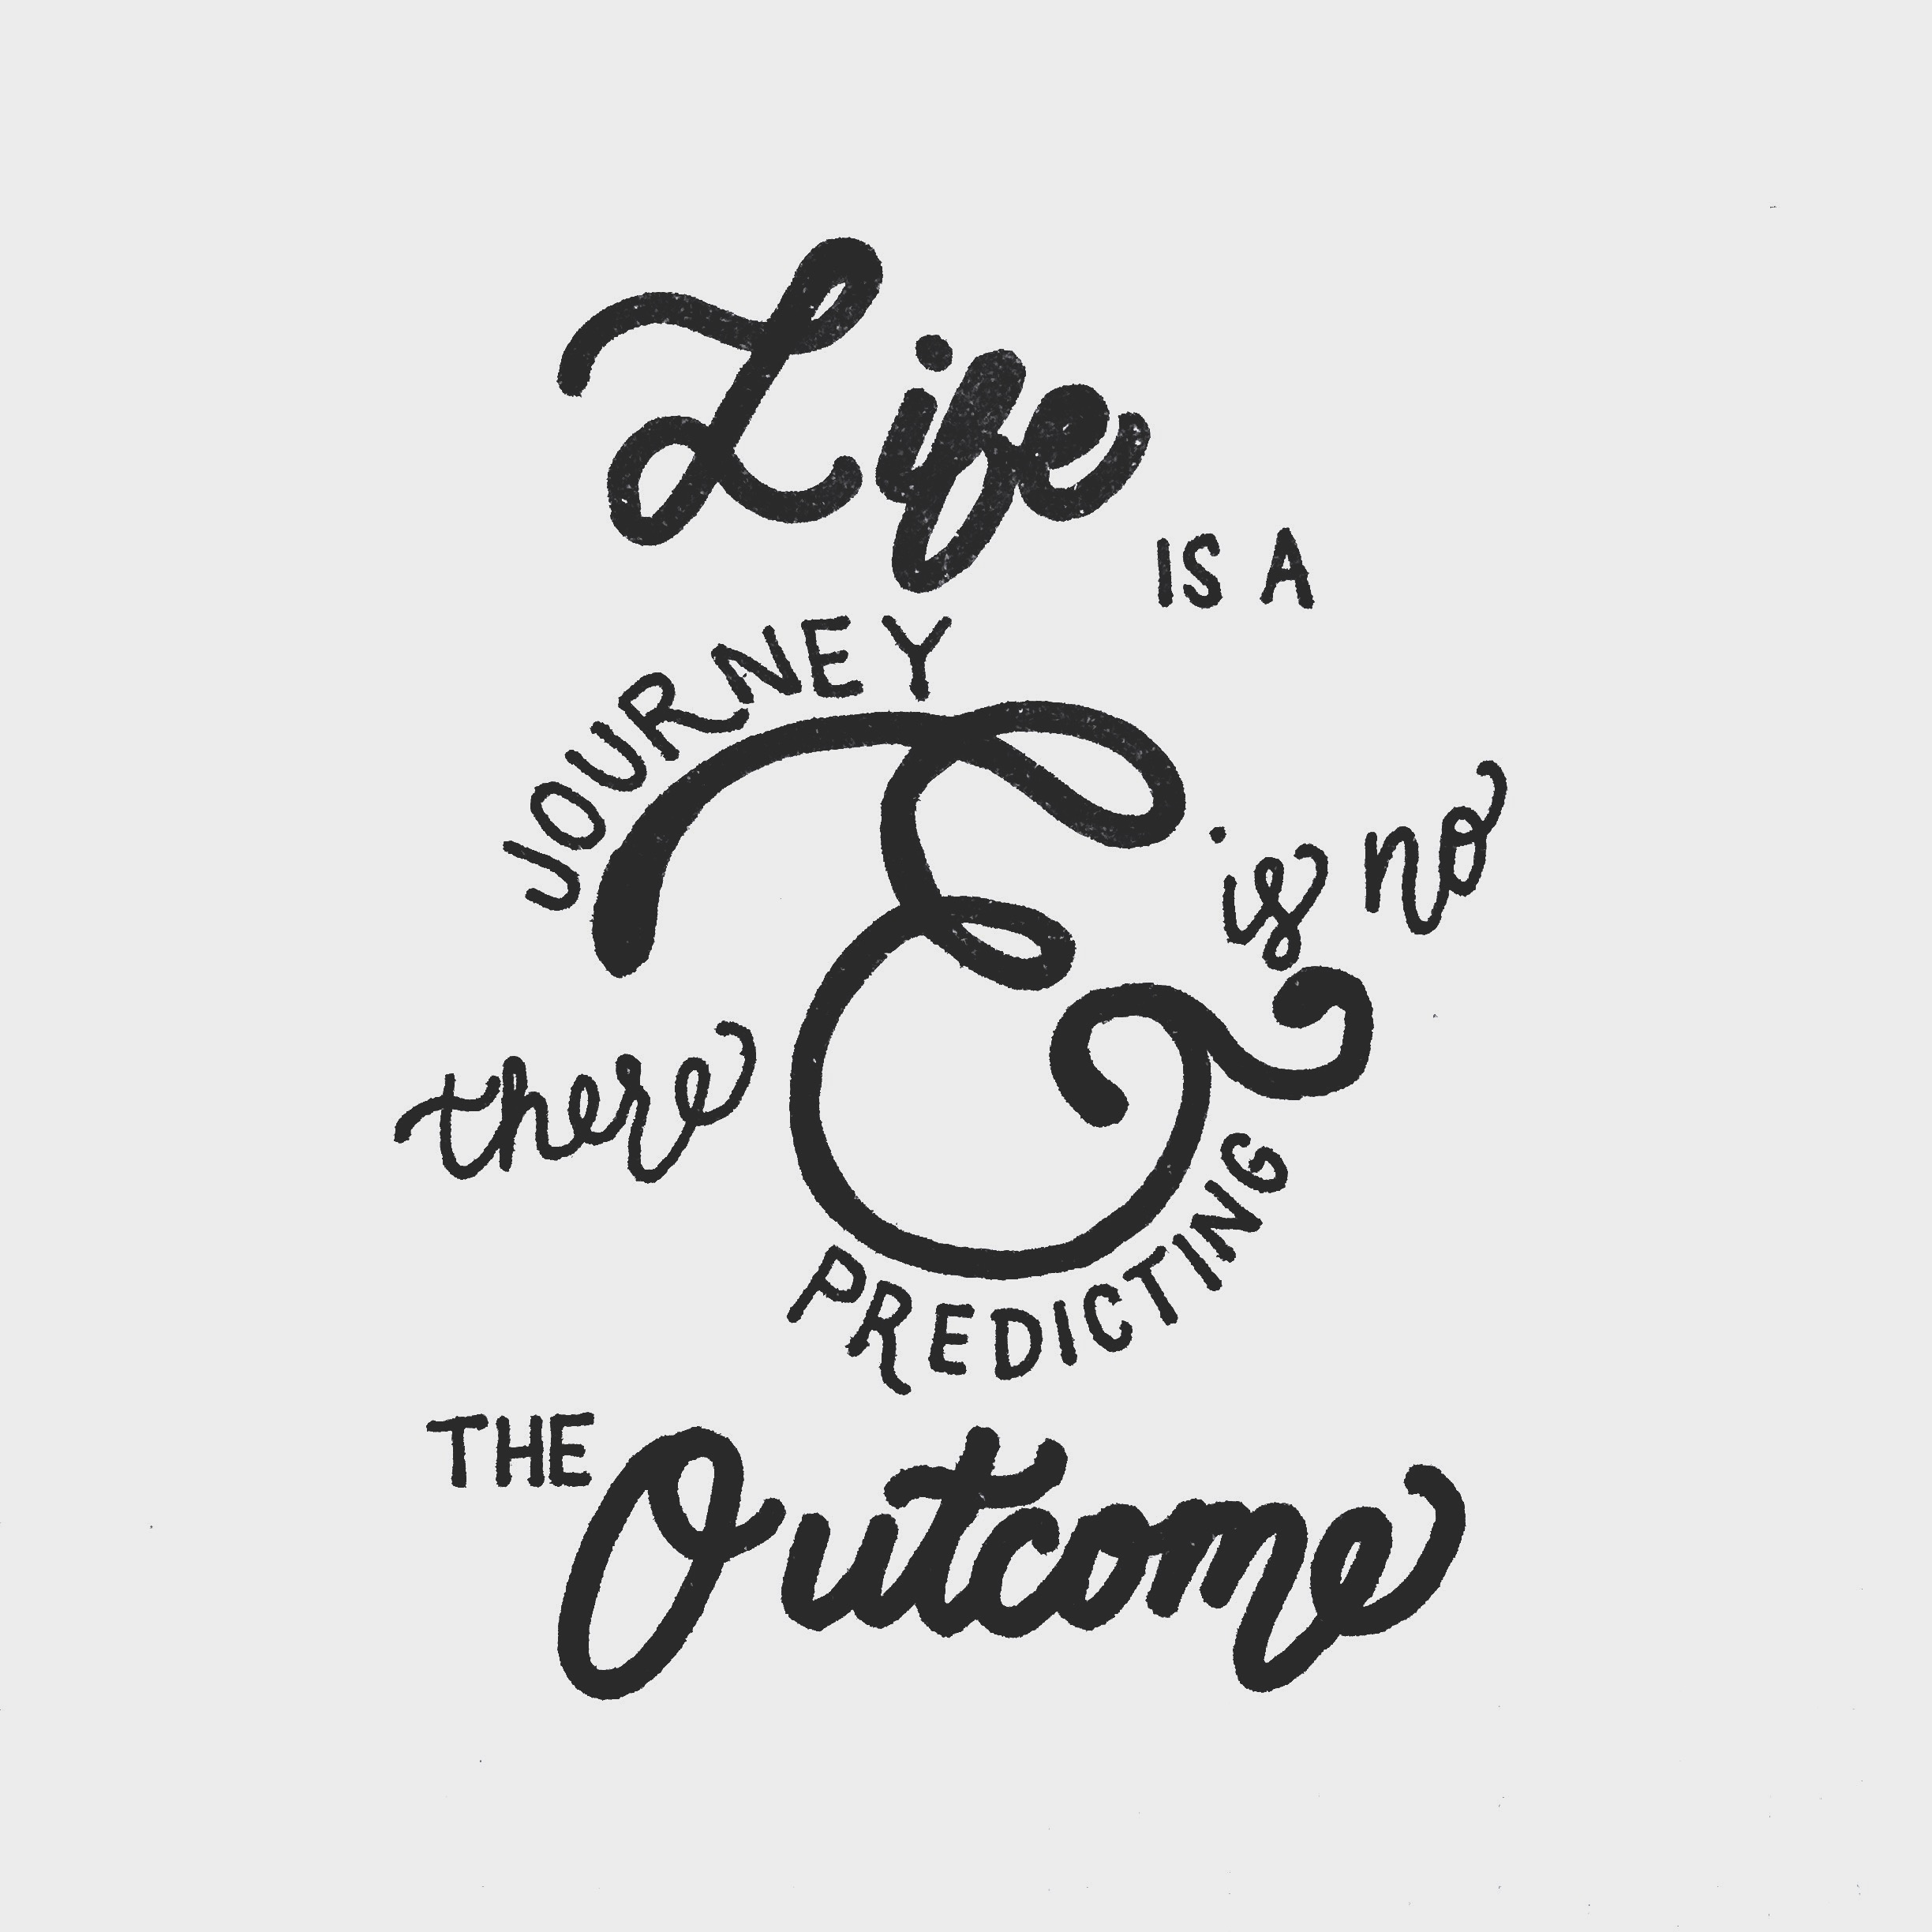 Life
IS A
JOURNEY
&
there
is no
PREDICTING
THE
Outcome